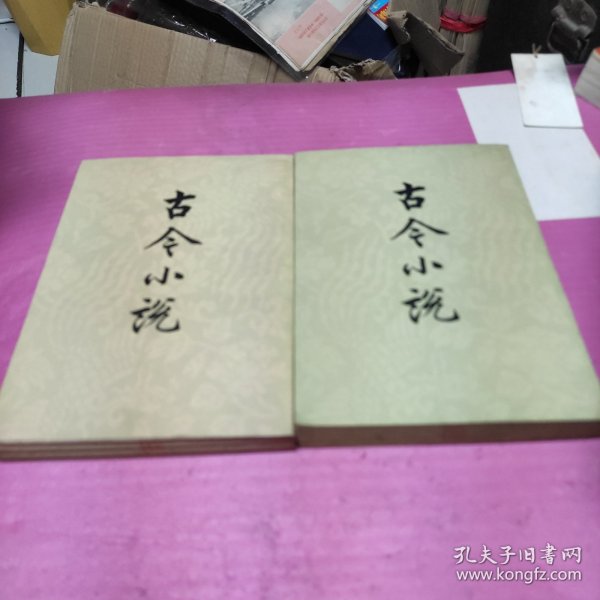 古今小說
古今小說
孔夫子旧书网
www.kongfz.com